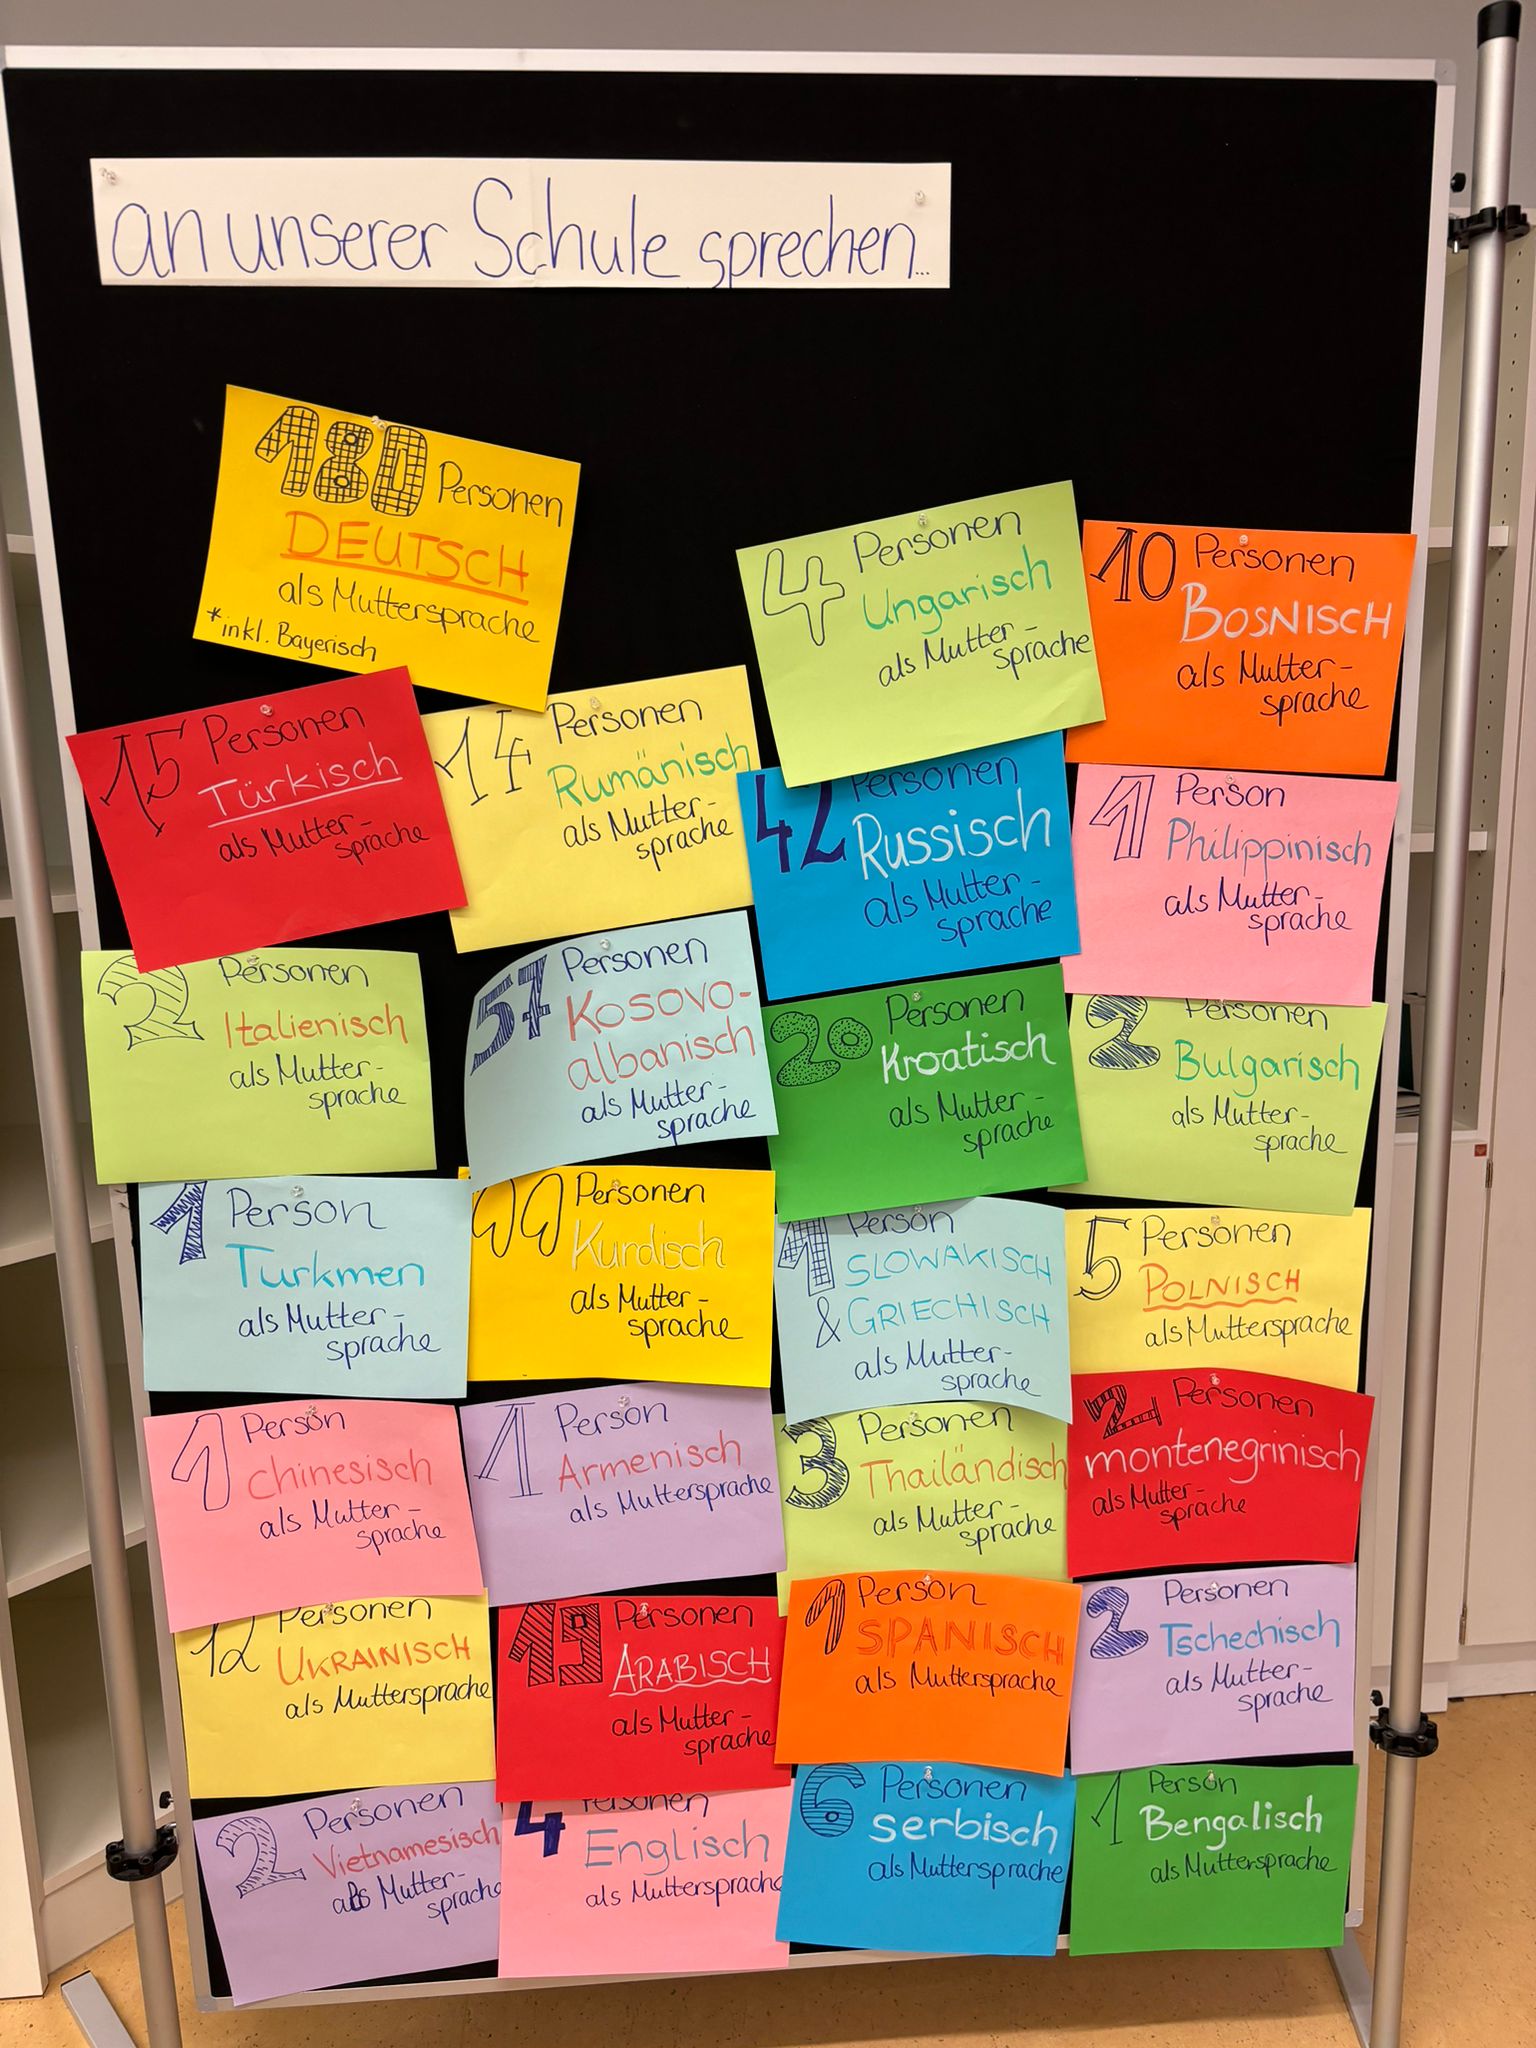 an unserer Schule sprechen...
180 Personen
DEUTSCH
als Muttersprache
*inkl. Bayerisch
4 Personen
Ungarisch
als Mutter-
sprache
10 Personen
BOSNISCH
als Mutter-
sprache
15 Personen
Türkisch
als Mutter-
sprache
14 Personen
Rumänisch
als Mutter-
sprache
42 Personen
Russisch
als Mutter-
sprache
1 Person
Philippinisch
als Mutter-
sprache
2 Personen
Italienisch
als Mutter-
sprache
57 Personen
Kosovo-
albanisch
als Mutter-
sprache
20 Personen
Kroatisch
als Mutter-
sprache
2 Personen
Bulgarisch
als Mutter-
sprache
1 Person
Turkmen
als Mutter-
sprache
Personen
Kurdisch
als Mutter-
sprache
1 Person
SLOWAKISCH
& GRIECHISCH
als Mutter-
sprache
5 Personen
POLNISCH
als Muttersprache
1 Person
chinesisch
als Mutter-
sprache
1 Person
Armenisch
als Muttersprache
3 Personen
Thailändisch
als Mutter-
sprache
2 Personen
montenegrinisch
als Mutter-
sprache
12 Personen
UKRAINISCH
als Muttersprache
19 Personen
ARABISCH
als Mutter-
sprache
1 Person
SPANISCH
als Muttersprache
2 Personen
Tschechisch
als Mutter-
sprache
2 Personen
Vietnamesisch
als Mutter-
sprache
4 Personen
Englisch
als Muttersprache
6 Personen
serbisch
als Muttersprache
1 Person
Bengalisch
als Muttersprache